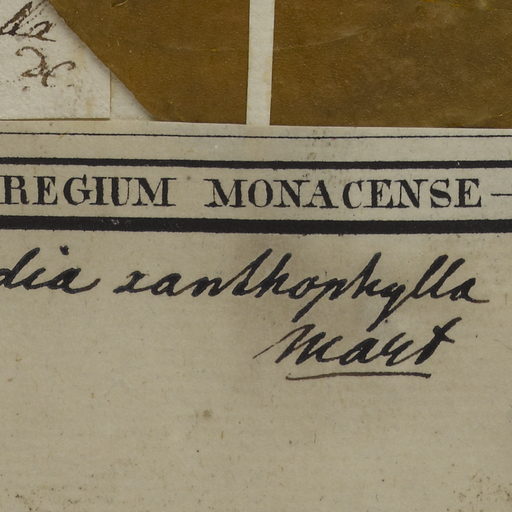 DC.
REGIUM MONACENSE —
dia xanthophylla
Mart